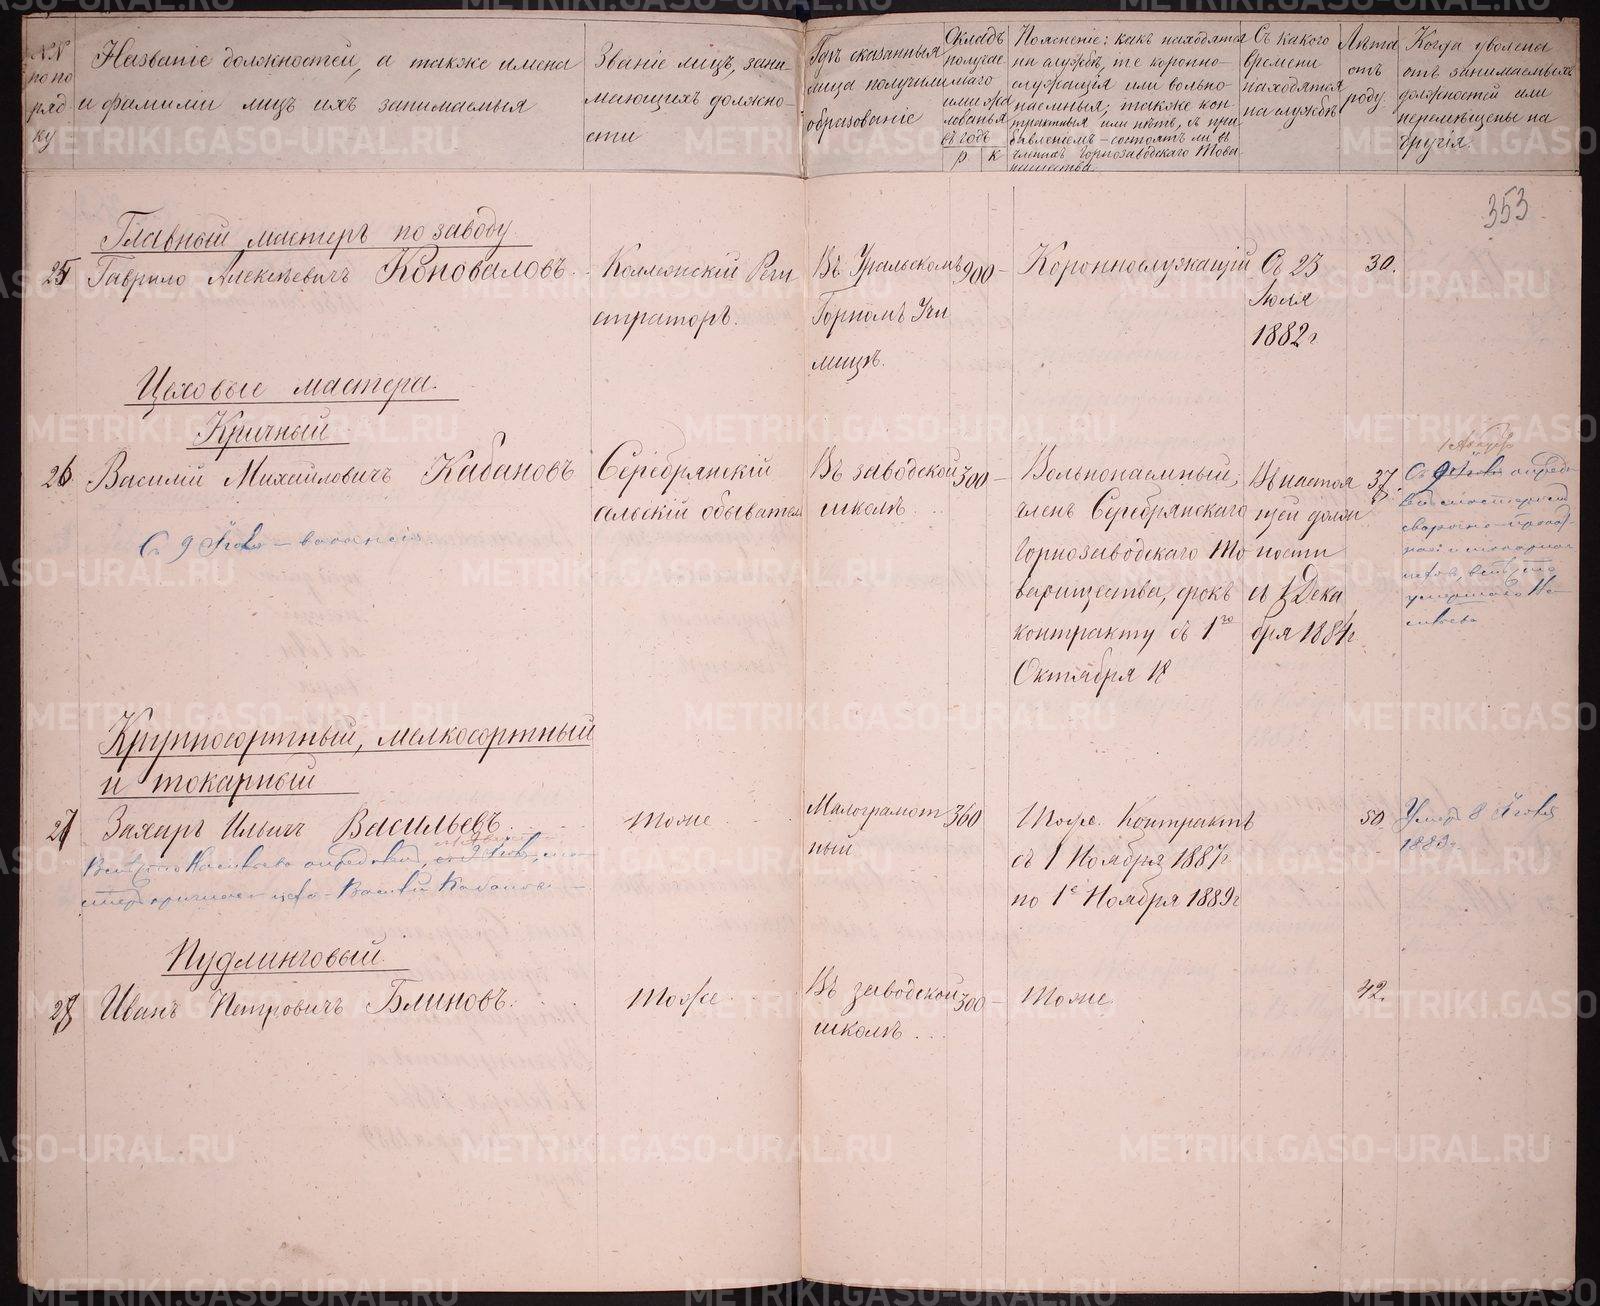 NN по порядку
Названіе должностей, а также имена
и фамиліи лицъ ихъ занимаемыя
Званіе лицъ, зани-
мающихъ должно-
сти
Гдѣ сказанныя
лица получили
образованіе
Окладъ
получае
маго
ими жа
лованья
въ годъ
р к
Поясненіе: какъ находятся
на службѣ, те коронно-
служащія или вольно-
наемныя; также кон-
трактныя или нѣтъ, съ при-
бавленіемъ – состоятъ ли въ
членахъ Горнозаводскаго Това-
рищества.
Съ какого
времени
находятся
на службѣ
Лѣта
отъ
роду.
Когда уволены
отъ занимаемыхъ
должностей или
перемѣщены на
другія.
353
Главный мастеръ по заводу.
25 Гаврило Алексѣевичъ Коноваловъ.
Коллежскій Реги
страторъ.
Въ Уральскомъ
Горномъ Учи
лищѣ.
900 –
Короннослужащій
Съ 23
Іюля
1882 г
30.
Цеховые мастера.
Кричный
26 Василій Михайловичъ Кабановъ
Серебрянскій
сельскій обыватель
Въ заводской
школѣ
300 –
Вольнонаемный,
членъ Серебрянскаго
Горнозаводскаго То
варищества, срокъ
контракту съ 1го
Октября 18
Въ настоя
щей долж
ности
съ 1 Дека
бря 1884 г.
37.
Съ 9 – вакансія.
Крупносортный, мелкосортный
и токарный
27 Захаръ Ильичъ Васильевъ
тоже
Малограмот
ный
360
Тоже. Контрактъ
съ 1 Ноября 1887 г
по 1е Ноября 1889 г
50.
Умеръ 8
1889 г.
Пудлинговый.
28 Иванъ Петровичъ Блиновъ.
тоже
Въ заводской
школѣ
300 –
тоже
42.
METRIKI.GASO-URAL.RU